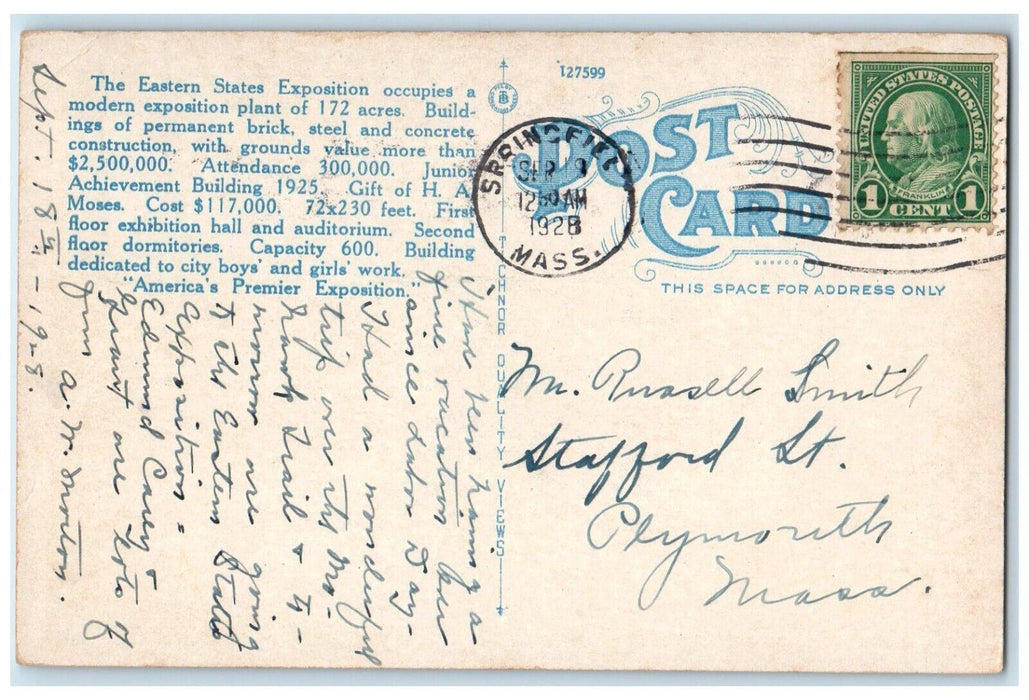 The Eastern States Exposition occupies a
modern exposition plant of 172 acres. Build-
ings of permanent brick, steel and concrete
construction, with grounds value more than
$2,500,000. Attendance 300,000. Junior
Achievement Building 1925. Gift of H. A.
Moses. Cost $117,000. 72x230 feet. First
floor exhibition hall and auditorium. Second
floor dormitories. Capacity 600. Building
dedicated to city boys' and girls' work.
"America's Premier Exposition."
Sept. 18th - 1928.
Have been having a
fine vacation here
since Labor Day-
Had a wonderful
trip over the Mo-
hawk Trail & to-
morrow are going
to the Eastern States
Exposition =
Edmund Carey &
Grant are
from A. W. Morton.
TECHNOR QUALITY VIEWS
127599
POST
CARD
THIS SPACE FOR ADDRESS ONLY
SPRINGFIELD
SEP
12 30 AM
1928
MASS.
UNITED STATES POSTAGE
FRANKLIN
1 CENT 1
Mr. Russell Smith
Stafford St.
Plymouth
Mass.